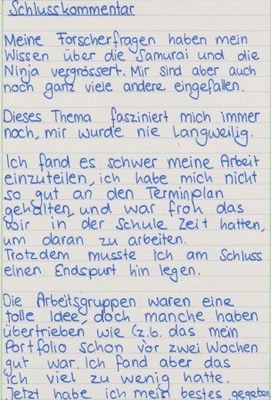 Schlusskommentar
Meine Forscherfragen haben mein
Wissen über die Samurai und die
Ninja vergrössert. Mir sind aber auch
noch ganz viele andere eingefallen.
Dieses Thema fasziniert mich immer
noch, mir wurde nie langweilig.
Ich fand es schwer meine Arbeit
einzuteilen, ich habe mich nicht
so gut an den Terminplan
gehalten, und war froh das
wir in der Schule Zeit hatten,
um daran zu arbeiten.
Trotzdem musste Ich am Schluss
einen Endspurt hin legen.
Die Arbeitsgruppen waren eine
tolle Idee doch manche haben
übertrieben wie (z.b. das mein
Portfolio schon vor zwei Wochen
gut war. Ich fand aber das
ich viel zu wenig hatte.
Jetzt habe ich mein bestes gegeben